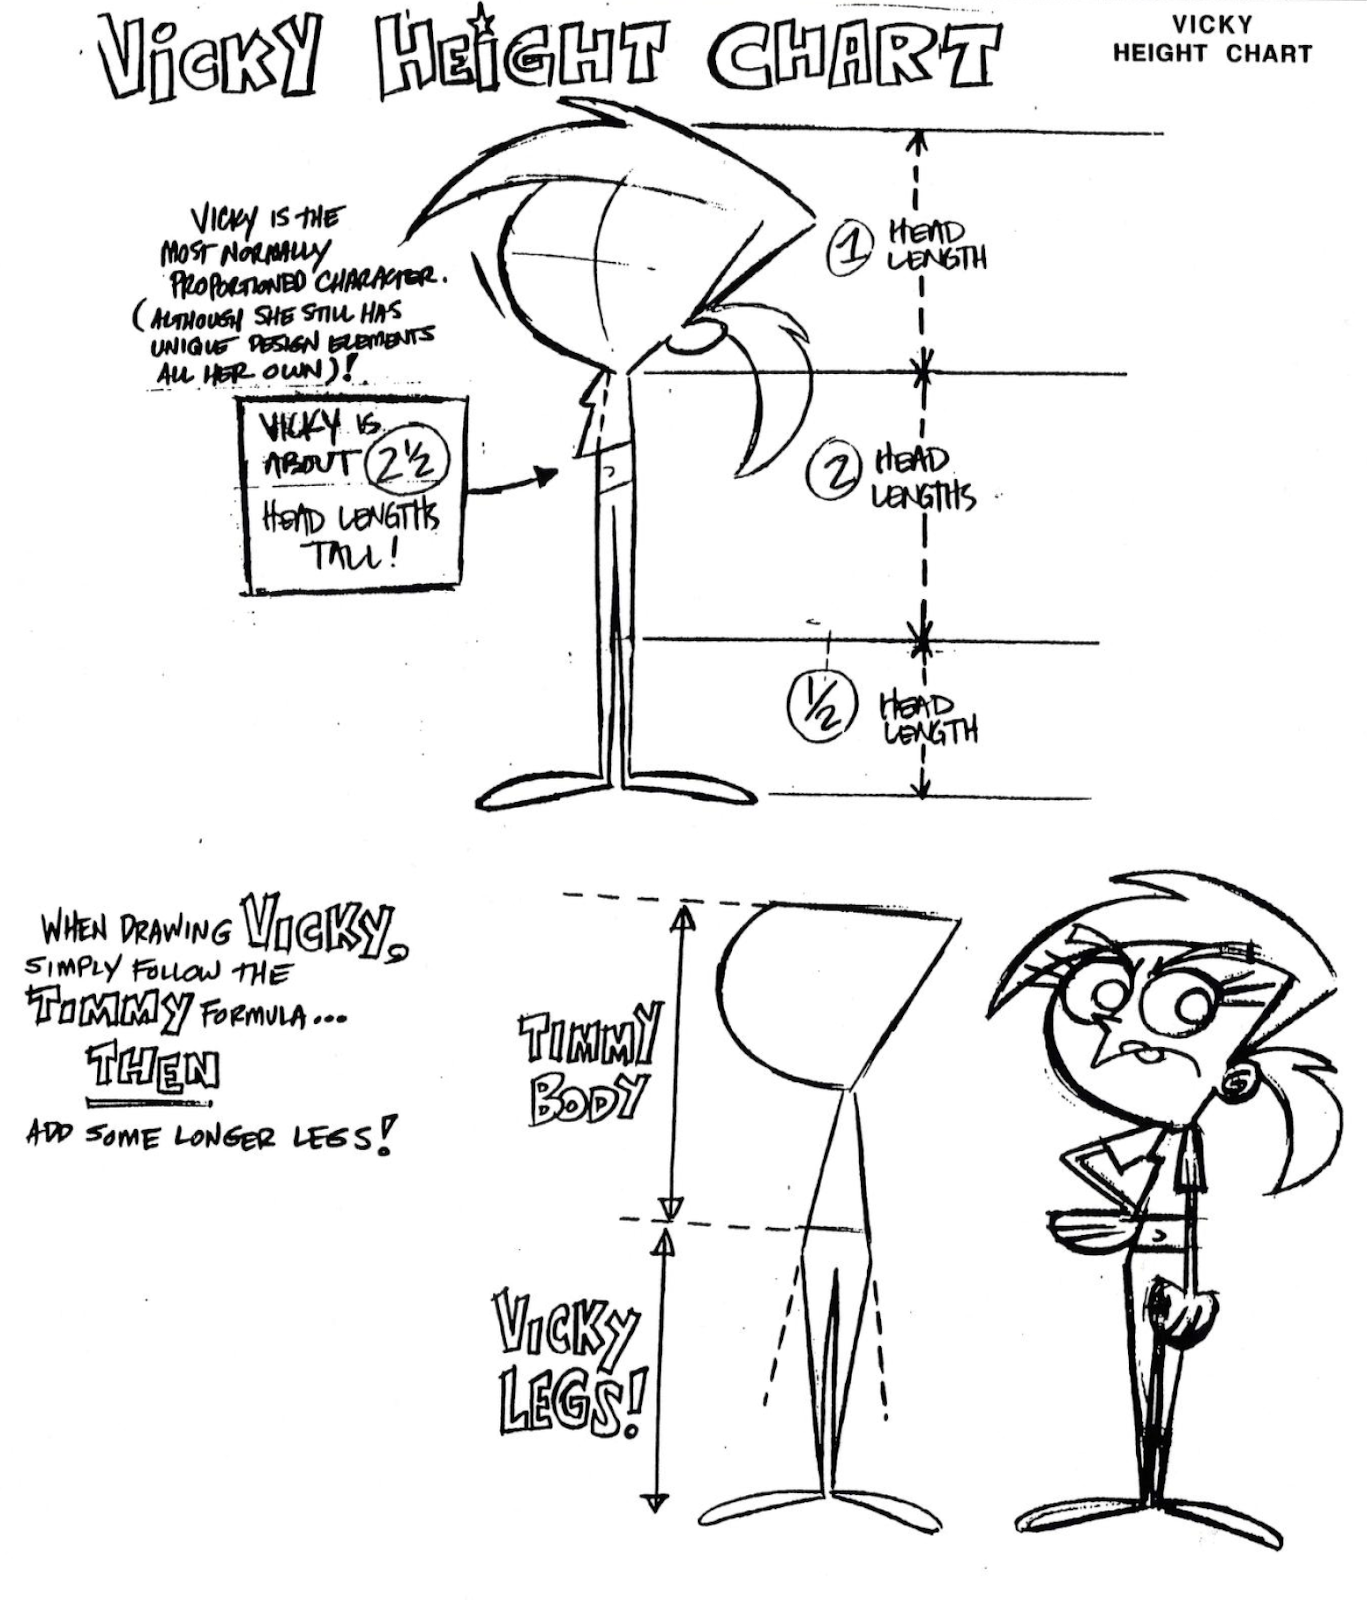 VICKY HEIGHT CHART
VICKY
HEIGHT CHART
VICKY IS THE
MOST NORMALLY
PROPORTIONED CHARACTER.
(ALTHOUGH SHE STILL HAS
UNIQUE DESIGN ELEMENTS
ALL HER OWN)!
VICKY IS
ABOUT 2½
HEAD LENGTHS
TALL!
1 HEAD
LENGTH
2 HEAD
LENGTHS
½ HEAD
LENGTH
WHEN DRAWING VICKY,
SIMPLY FOLLOW THE
TIMMY FORMULA...
THEN
ADD SOME LONGER LEGS!
TIMMY
BODY
VICKY
LEGS!